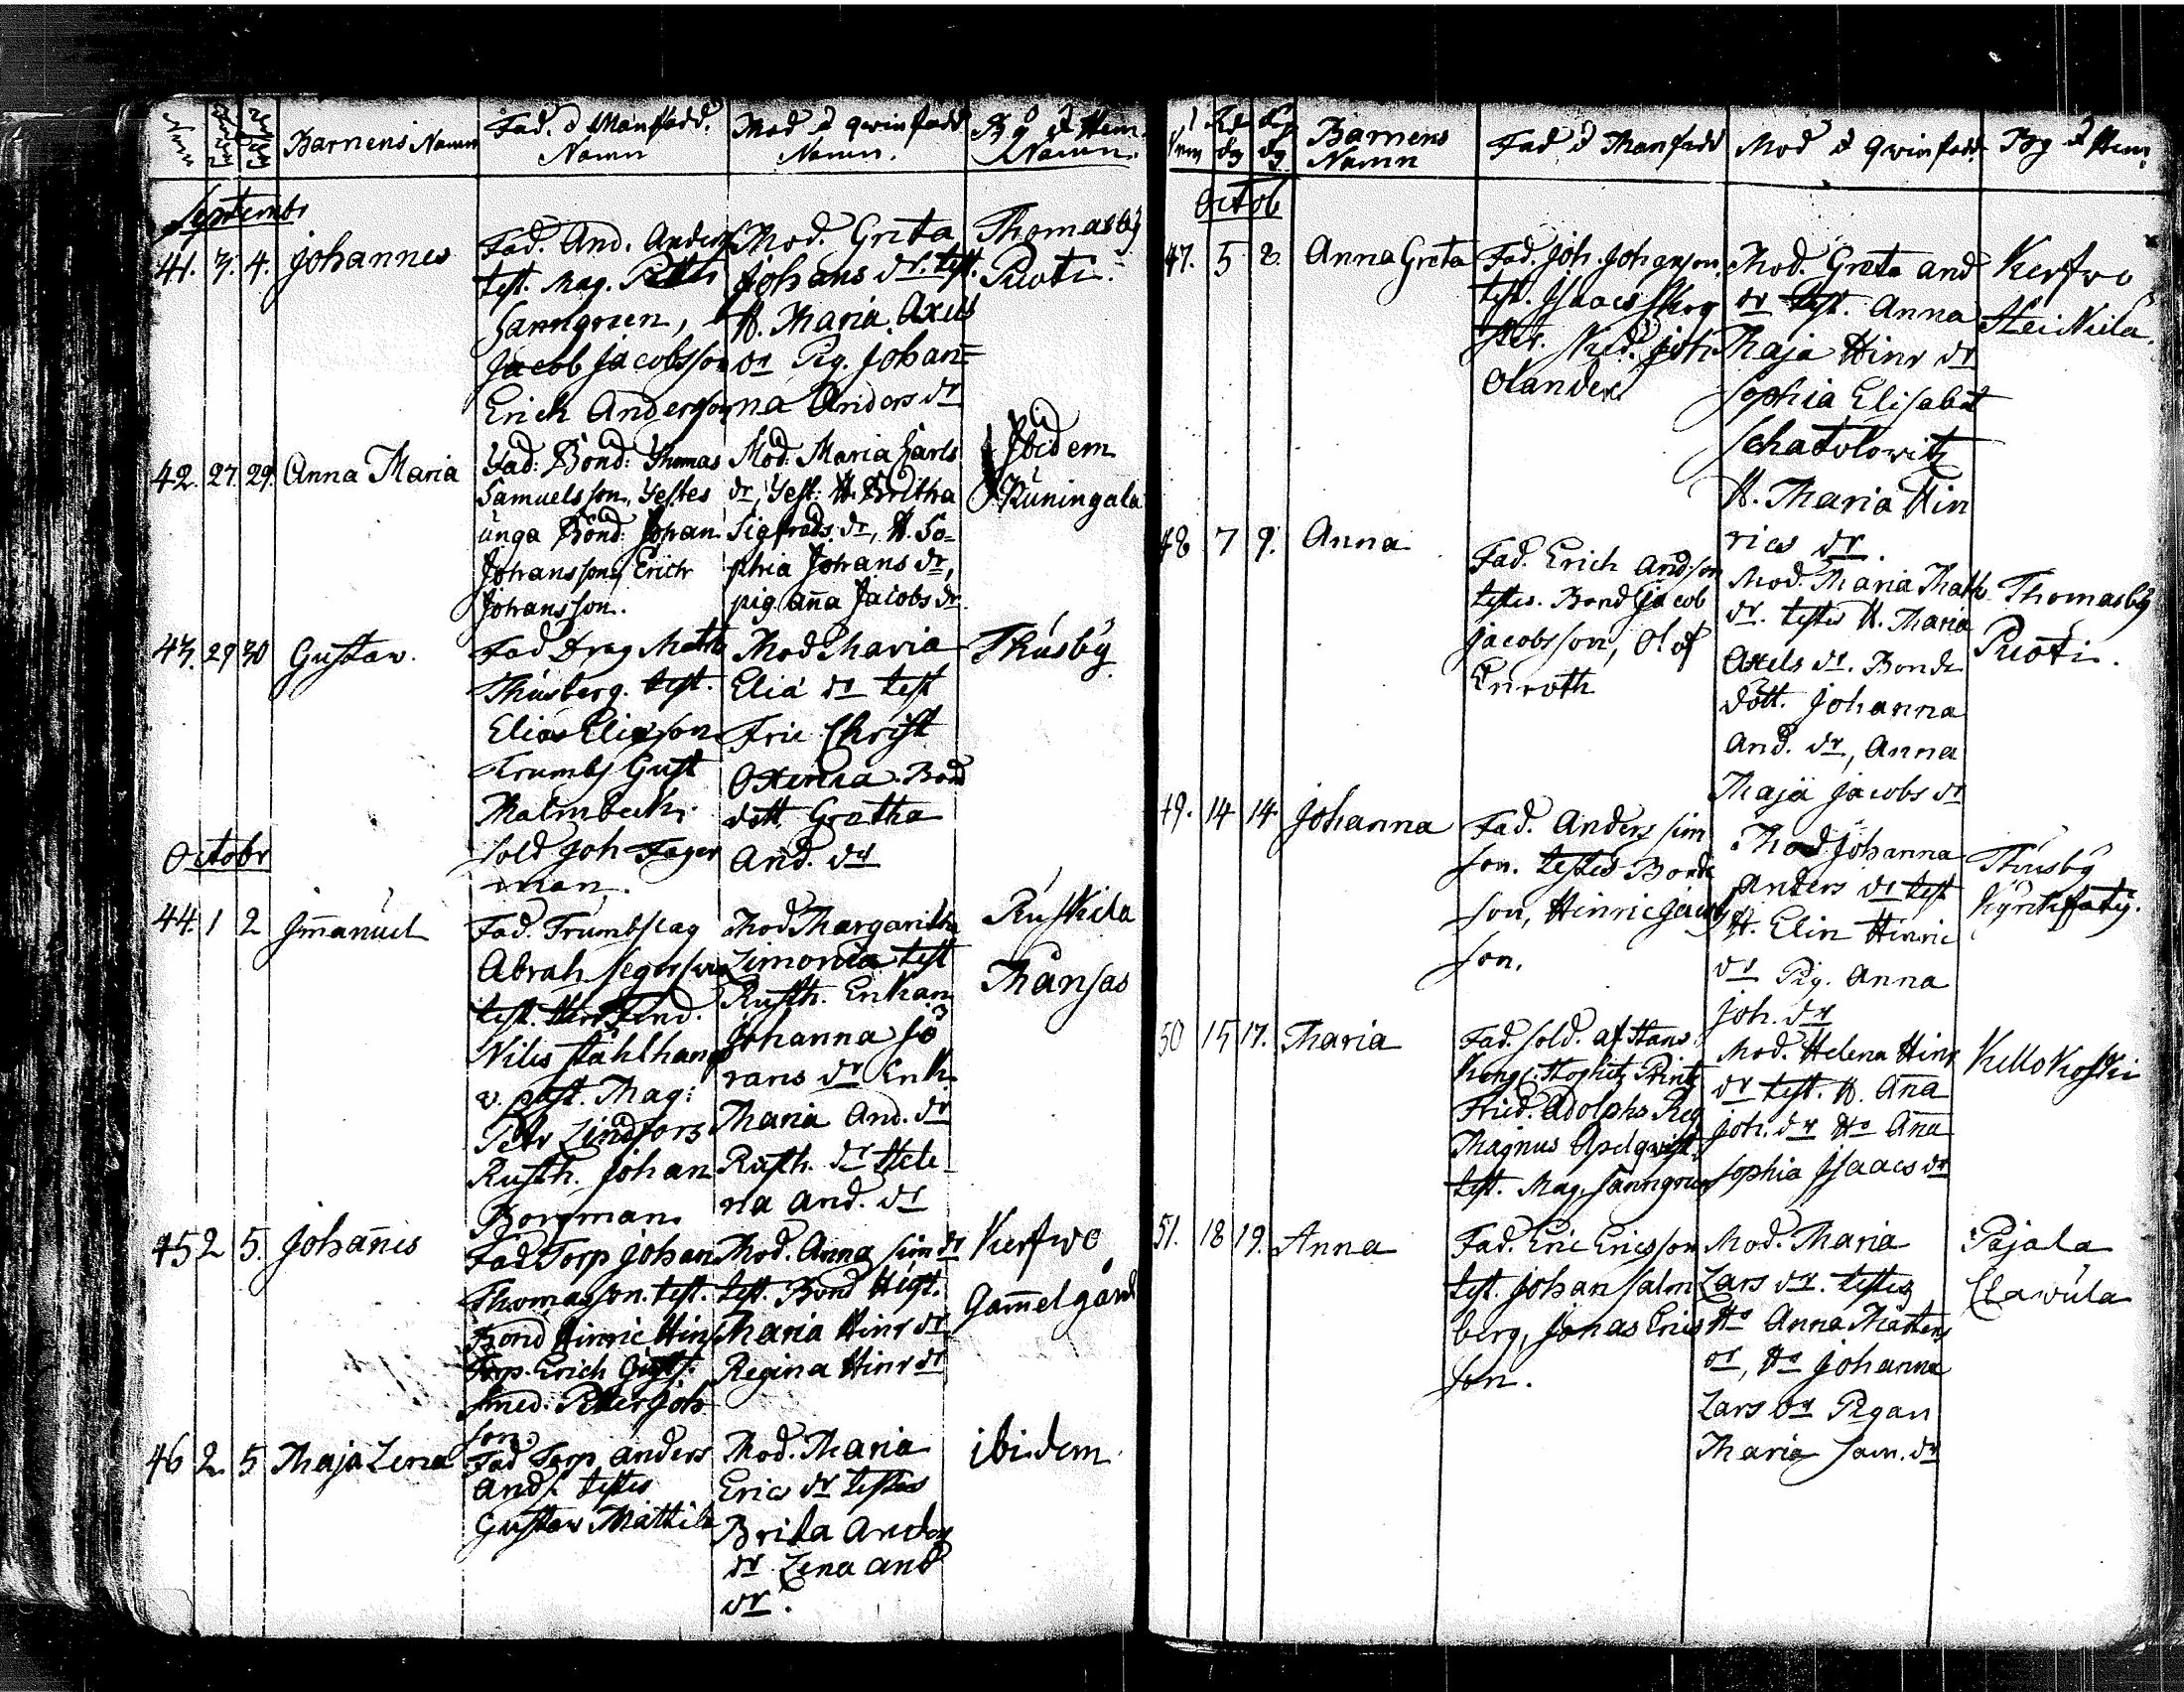 Barnens Namn
Fad. o Manfadd.
Namn
Mod o qwinfadd
Namn.
By o Hem.
Namn.
Septembr
41. 3. 4. Johannes
Fad. And. Anders
test. Mag. Petter
Sanngreen,
Jacob Jacobsson
Erich Andersson
Mod. Greta
Johans dr. test.
H. Maria Axels
dr Pig. Johan=
na Anders dr
Thomasby
Puoti.
42. 27. 29. Anna Maria
Fad: Bond: Thomas
Samuelsson, Testes
unga Bond: Johan
Johansson, Erich
Johansson.
Mod: Maria Carls
dr, Test: H. Britha
Sigfrids dr, H. So=
phia Johans dr,
pig. Anna Jacobs dr
Ibidem
Kuningala
43. 29 30 Gustav.
Fad Drag Math
Thusberg. test.
Elias Eliasson
Trumbs Gust
Malmbeck.
Sold Joh Fager
man.
Mod Maria
Elia dr test
Fru Christ
Bond
dott. Gretha
And. dr
Thusby
Octobr
44. 1 2 Immanuel
Fad. Trumbslag
Abrah
test. Herr
Nils Stahlhan
v. past. Mag:
Petr Lindfors
Rusth. Johan
Borgman
Mod Margaretha
Limonia test
Rusth. Enkan
Johanna Jö
rans dr Enk
Maria And. dr
Rusth. dr Hele
na And. dr
Ruskila
Månsas
45 2 5. Johannes
Fad Torp Johan
Thomasson. test.
Bond Hinric Hins
Torp. Erich
Smed. Petter Joh
son.
Mod. Anna Sim dr
test. Bond Hust.
Maria Hinr dr
Regina Hinr dr
Kerfwo
Gammelgård
46 2. 5 Maja Lena
Fad Torp anders
And. testes
Gustav Mattils
Mod. Maria
Erics dr testes
Brita Anders
dr Lena And
dr.
ibidem
Num
dg dg
Barnens
Namn
Fad o Manfadd
Mod o qwinfadd.
By o Hem.
Octob
47. 5 8. Anna Greta
Fad. Joh. Johanson.
test. Isaac Skog
Joh
Olander
Mod. Greta And
dr test. Anna
Maja Hinr dr
Sophia Elisabet
Schatolowitz
H. Maria Hin
rics dr.
Kerfwo
Heikkila.
48 7 9. Anna
Fad. Erich Andson
testes. Bond Jacob
Jacobsson, Olof
Enroth
Mod. Maria Math
dr. testes H. Maria
Axels dr. Bonde
dott. Johanna
And. dr, Anna
Maja Jacobs dr
Thomasby
Puoti.
49. 14 14. Johanna
Fad. Anders Sim
son. testes Bonde
son, Hinric Jacob
son.
Mod Johanna
Anders dr test
H. Elin Hinric
dr Pig. Anna
Joh. dr
Thusby
50 15 17. Maria
Fad. Sold. af Hans
Kongl. Hoghetz Printz
Fried. Adolphs Reg
Magnus Apelqwist.
test. Mag. Sanngreen
Mod. Helena Hinr
dr test. H. Anna
Joh. dr Ho Anna
Sophia Isaacs dr
Kellokoski
51. 18 19. Anna
Fad. Eric Ericsson
test. Johan Salm
berg, Jonas Erics
son.
Mod. Maria
Lars dr. testes
Ho Anna Mattens
dr, Ho Johanna
Lars dr Pigan
Maria Sam. dr
Pajala
Clawula